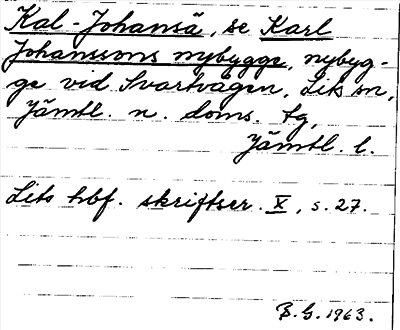 Kal-Johanså, se Karl
Johanssons nybygge, nybyg-
ge vid Svartvågen, Lits sn,
Jämtl. n. doms. tg,
Jämtl. l.
Lits hbf. skriftser. X, s. 27.
B.G. 1963.